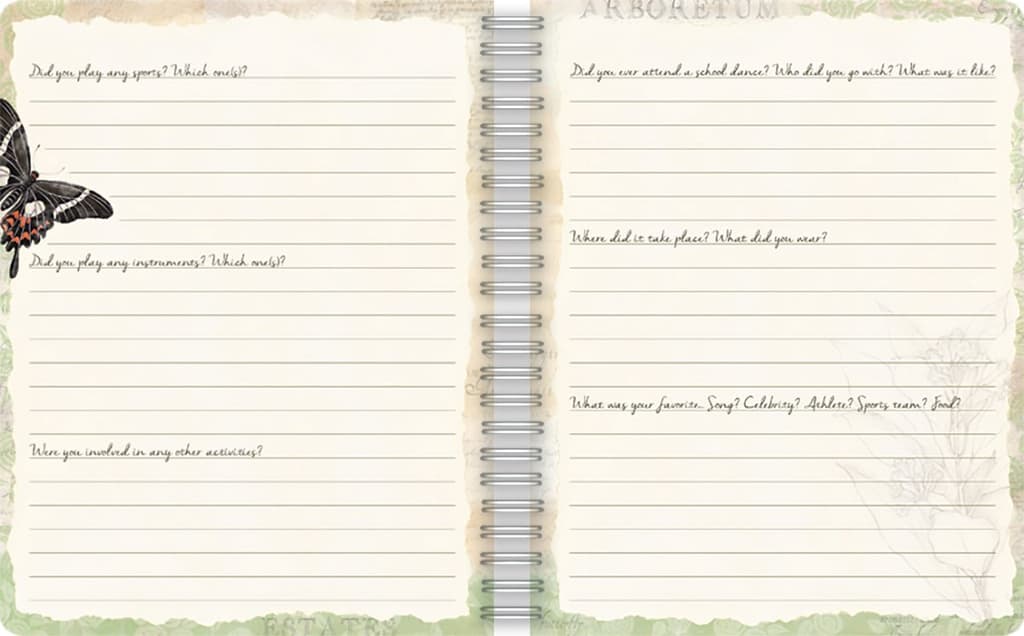 Did you play any sports? Which one(s)?
Did you play any instruments? Which one(s)?
Were you involved in any other activities?
ESTATES
ARBORETUM
Did you ever attend a school dance? Who did you go with? What was it like?
Where did it take place? What did you wear?
What was your favorite... Song? Celebrity? Athlete? Sports team? Food?